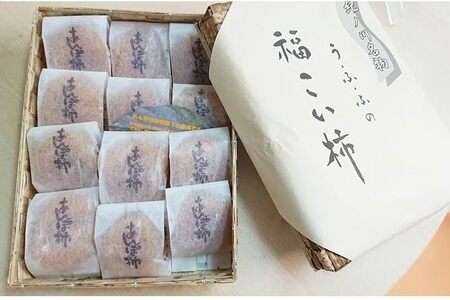 紀ノ川名物
う・ふ・ふの
福こい柿
あんぽ柿
あんぽ柿
あんぽ柿
あんぽ柿
あんぽ柿
あんぽ柿
あんぽ柿
あんぽ柿
あんぽ柿
あんぽ柿
あんぽ柿
あんぽ柿